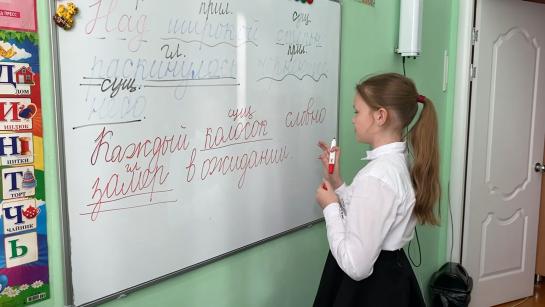 прил. сущ.
Над широкой степью
гл. прил.
раскинулось
сущ.
небо.
сущ
Каждый колосок словно
гл
замер в ожидании.
Д ДОМ
И ИНДЮК
Н НИТКИ
Т ТОРТ
Ч ЧАЙНИК
Ь